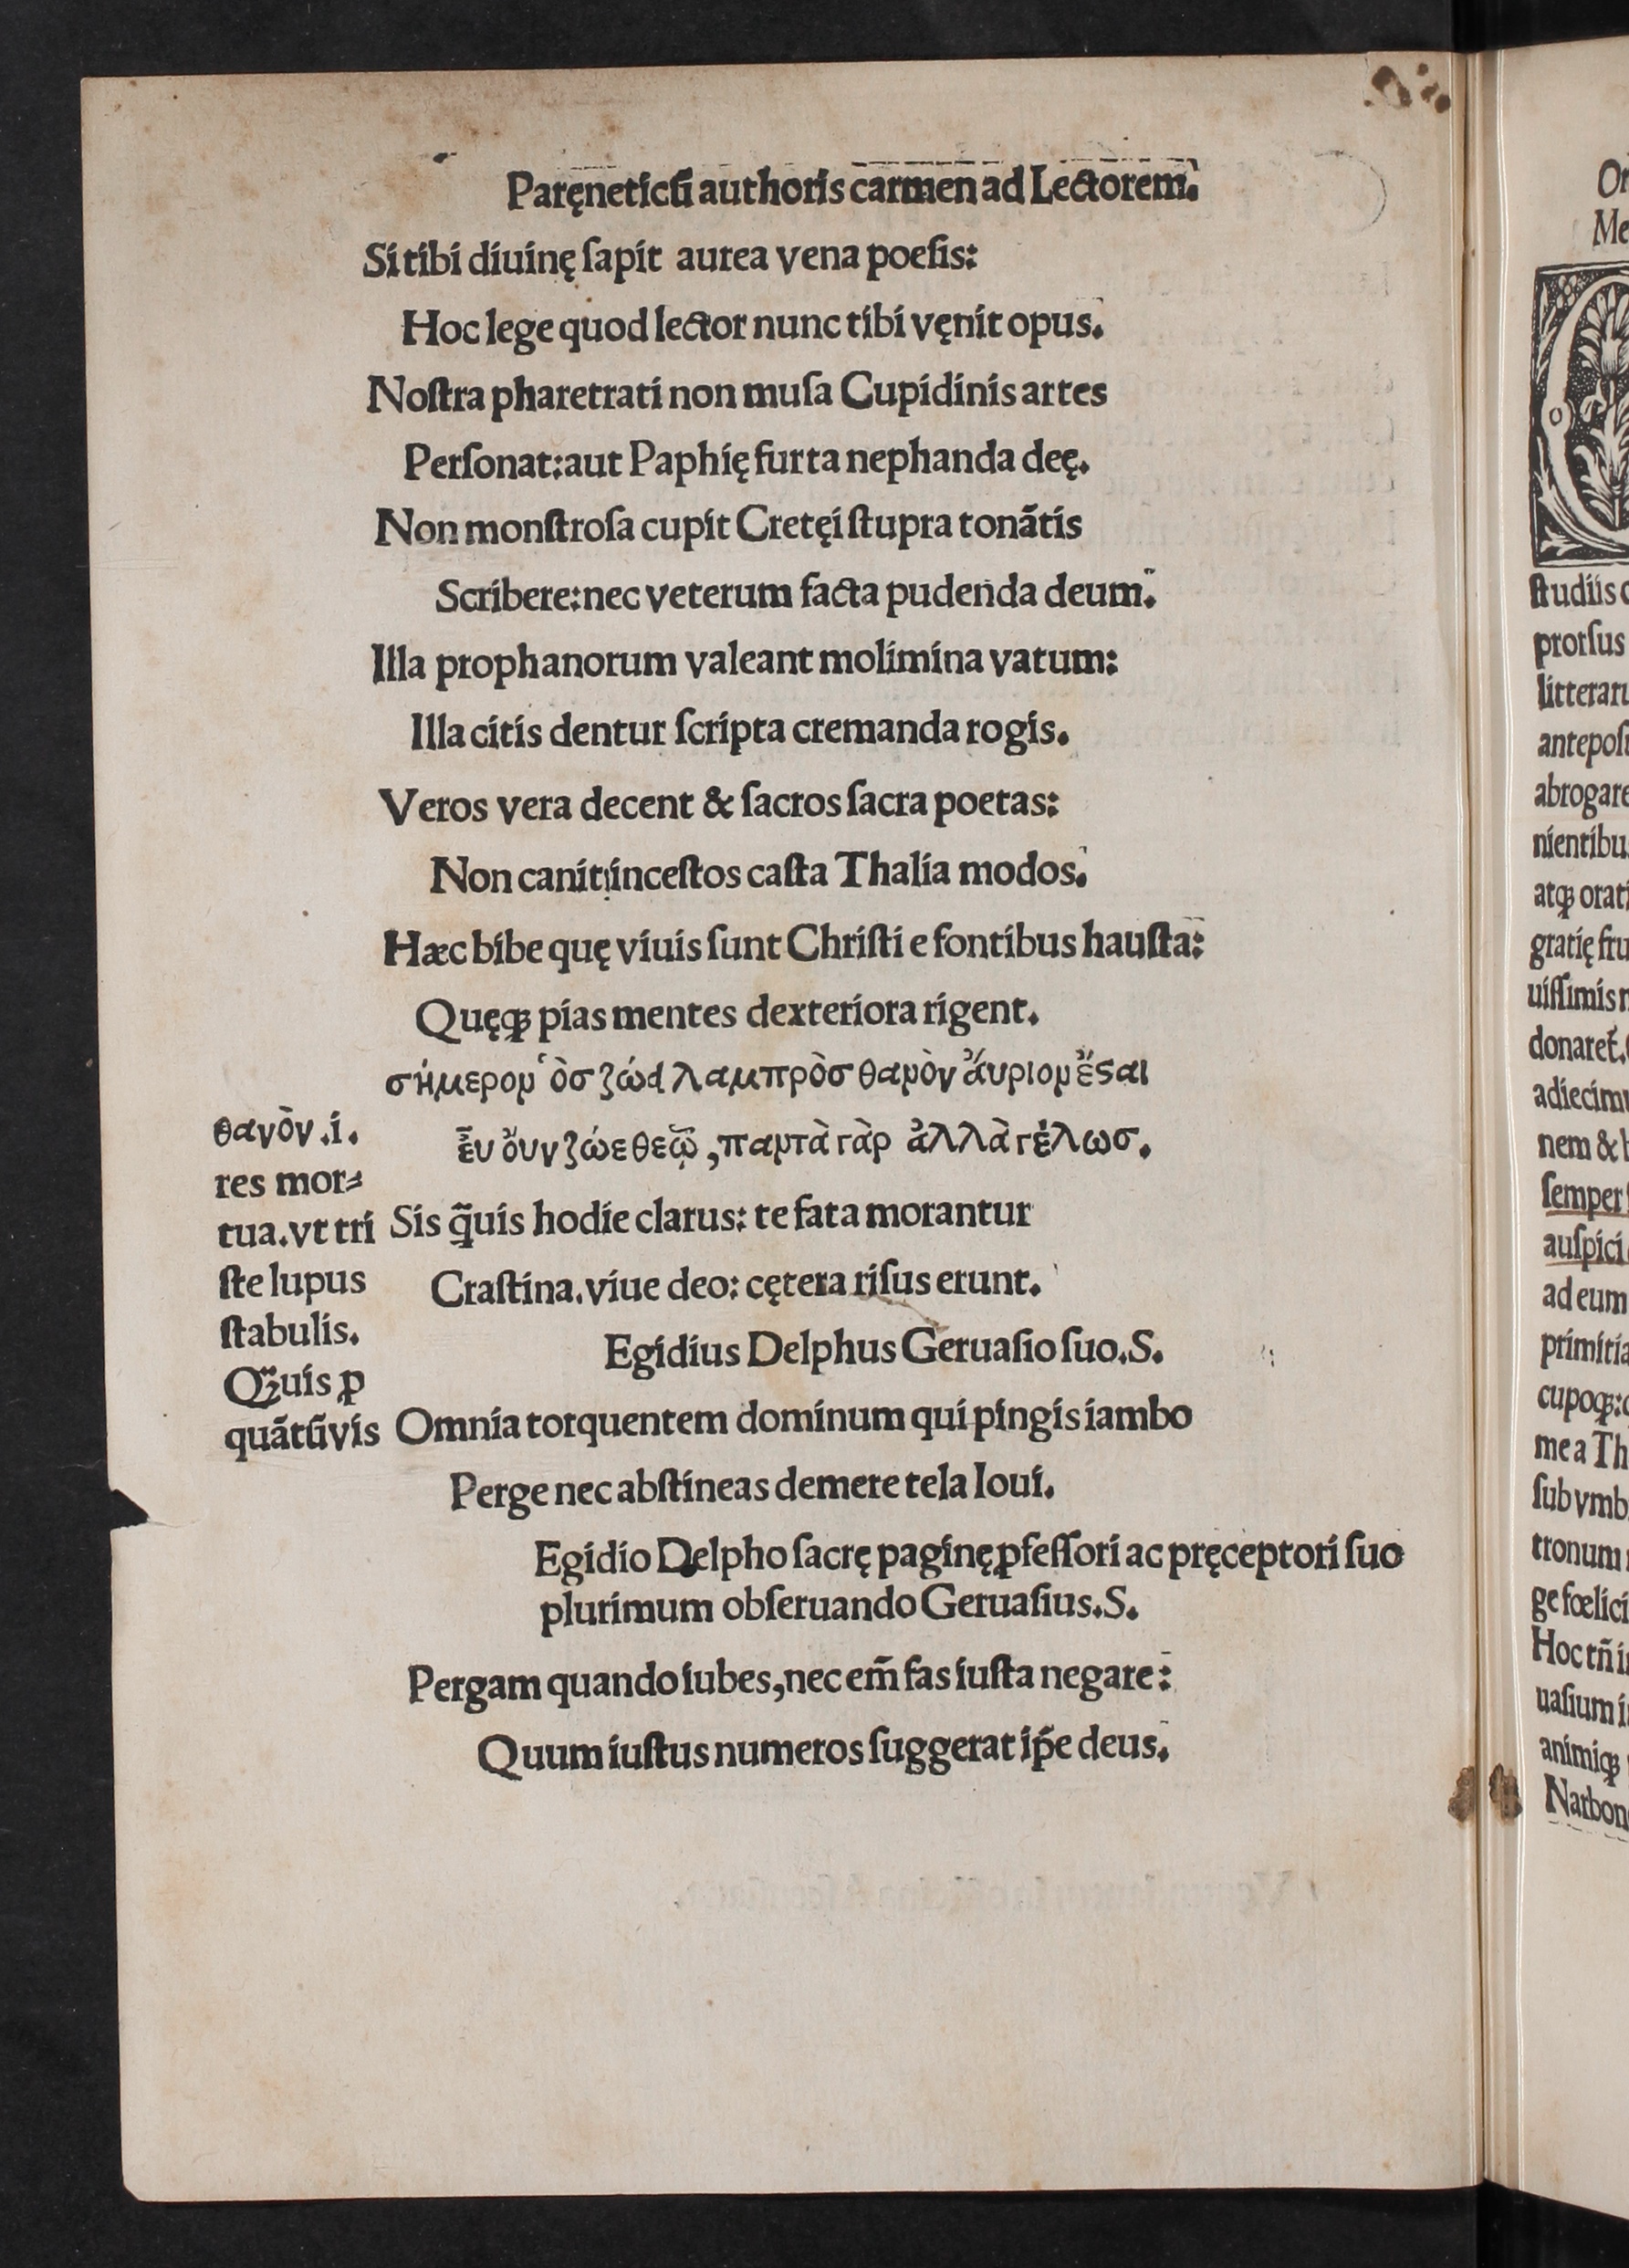 Paręneticū authoris carmen ad Lectorem.
Si tibi diuinę ſapit aurea vena poeſis:
Hoc lege quod lector nunc tibi vęnit opus.
Noſtra pharetrati non muſa Cupidinis artes
Perſonat:aut Paphię furta nephanda deę.
Non monſtroſa cupit Cretęi ſtupra tonātis
Scribere:nec veterum facta pudenda deum.
Illa prophanorum valeant molimina vatum:
Illa citis dentur ſcripta cremanda rogis.
Veros vera decent & ſacros ſacra poetas:
Non canit inceſtos caſta Thalia modos.
Hæc bibe quę viuis ſunt Chriſti e fontibus hauſta:
Quęqꝫ pias mentes dexteriora rigent.
σήμερον ὁσ ζώει λαμπρὸσ θανὸν ἄυριον ἔςαι
἖υ ὄυν ζώε θεῷ, παντὰ γὰρ ἀλλὰ γέλωσ.
Sis q̄uis hodie clarus: te fata morantur
Craſtina.viue deo: cętera riſus erunt.
θανὸν .i.
res mor⸗
tua.vt tri
ſte lupus
ſtabulis.
Qꝫuis ꝑ
quātūvis
Egidius Delphus Geruaſio ſuo.S.
Omnia torquentem dominum qui pingis iambo
Perge nec abſtineas demere tela Ioui.
Egidio Delpho ſacrę paginę ꝓfeſſori ac pręceptori ſuo
plurimum obſeruando Geruaſius.S.
Pergam quando iubes,nec em̄ fas iuſta negare:
Quum iuſtus numeros ſuggerat ip̄e deus.
ſtudiis
protſus
abrogare
ſemper
ad eum